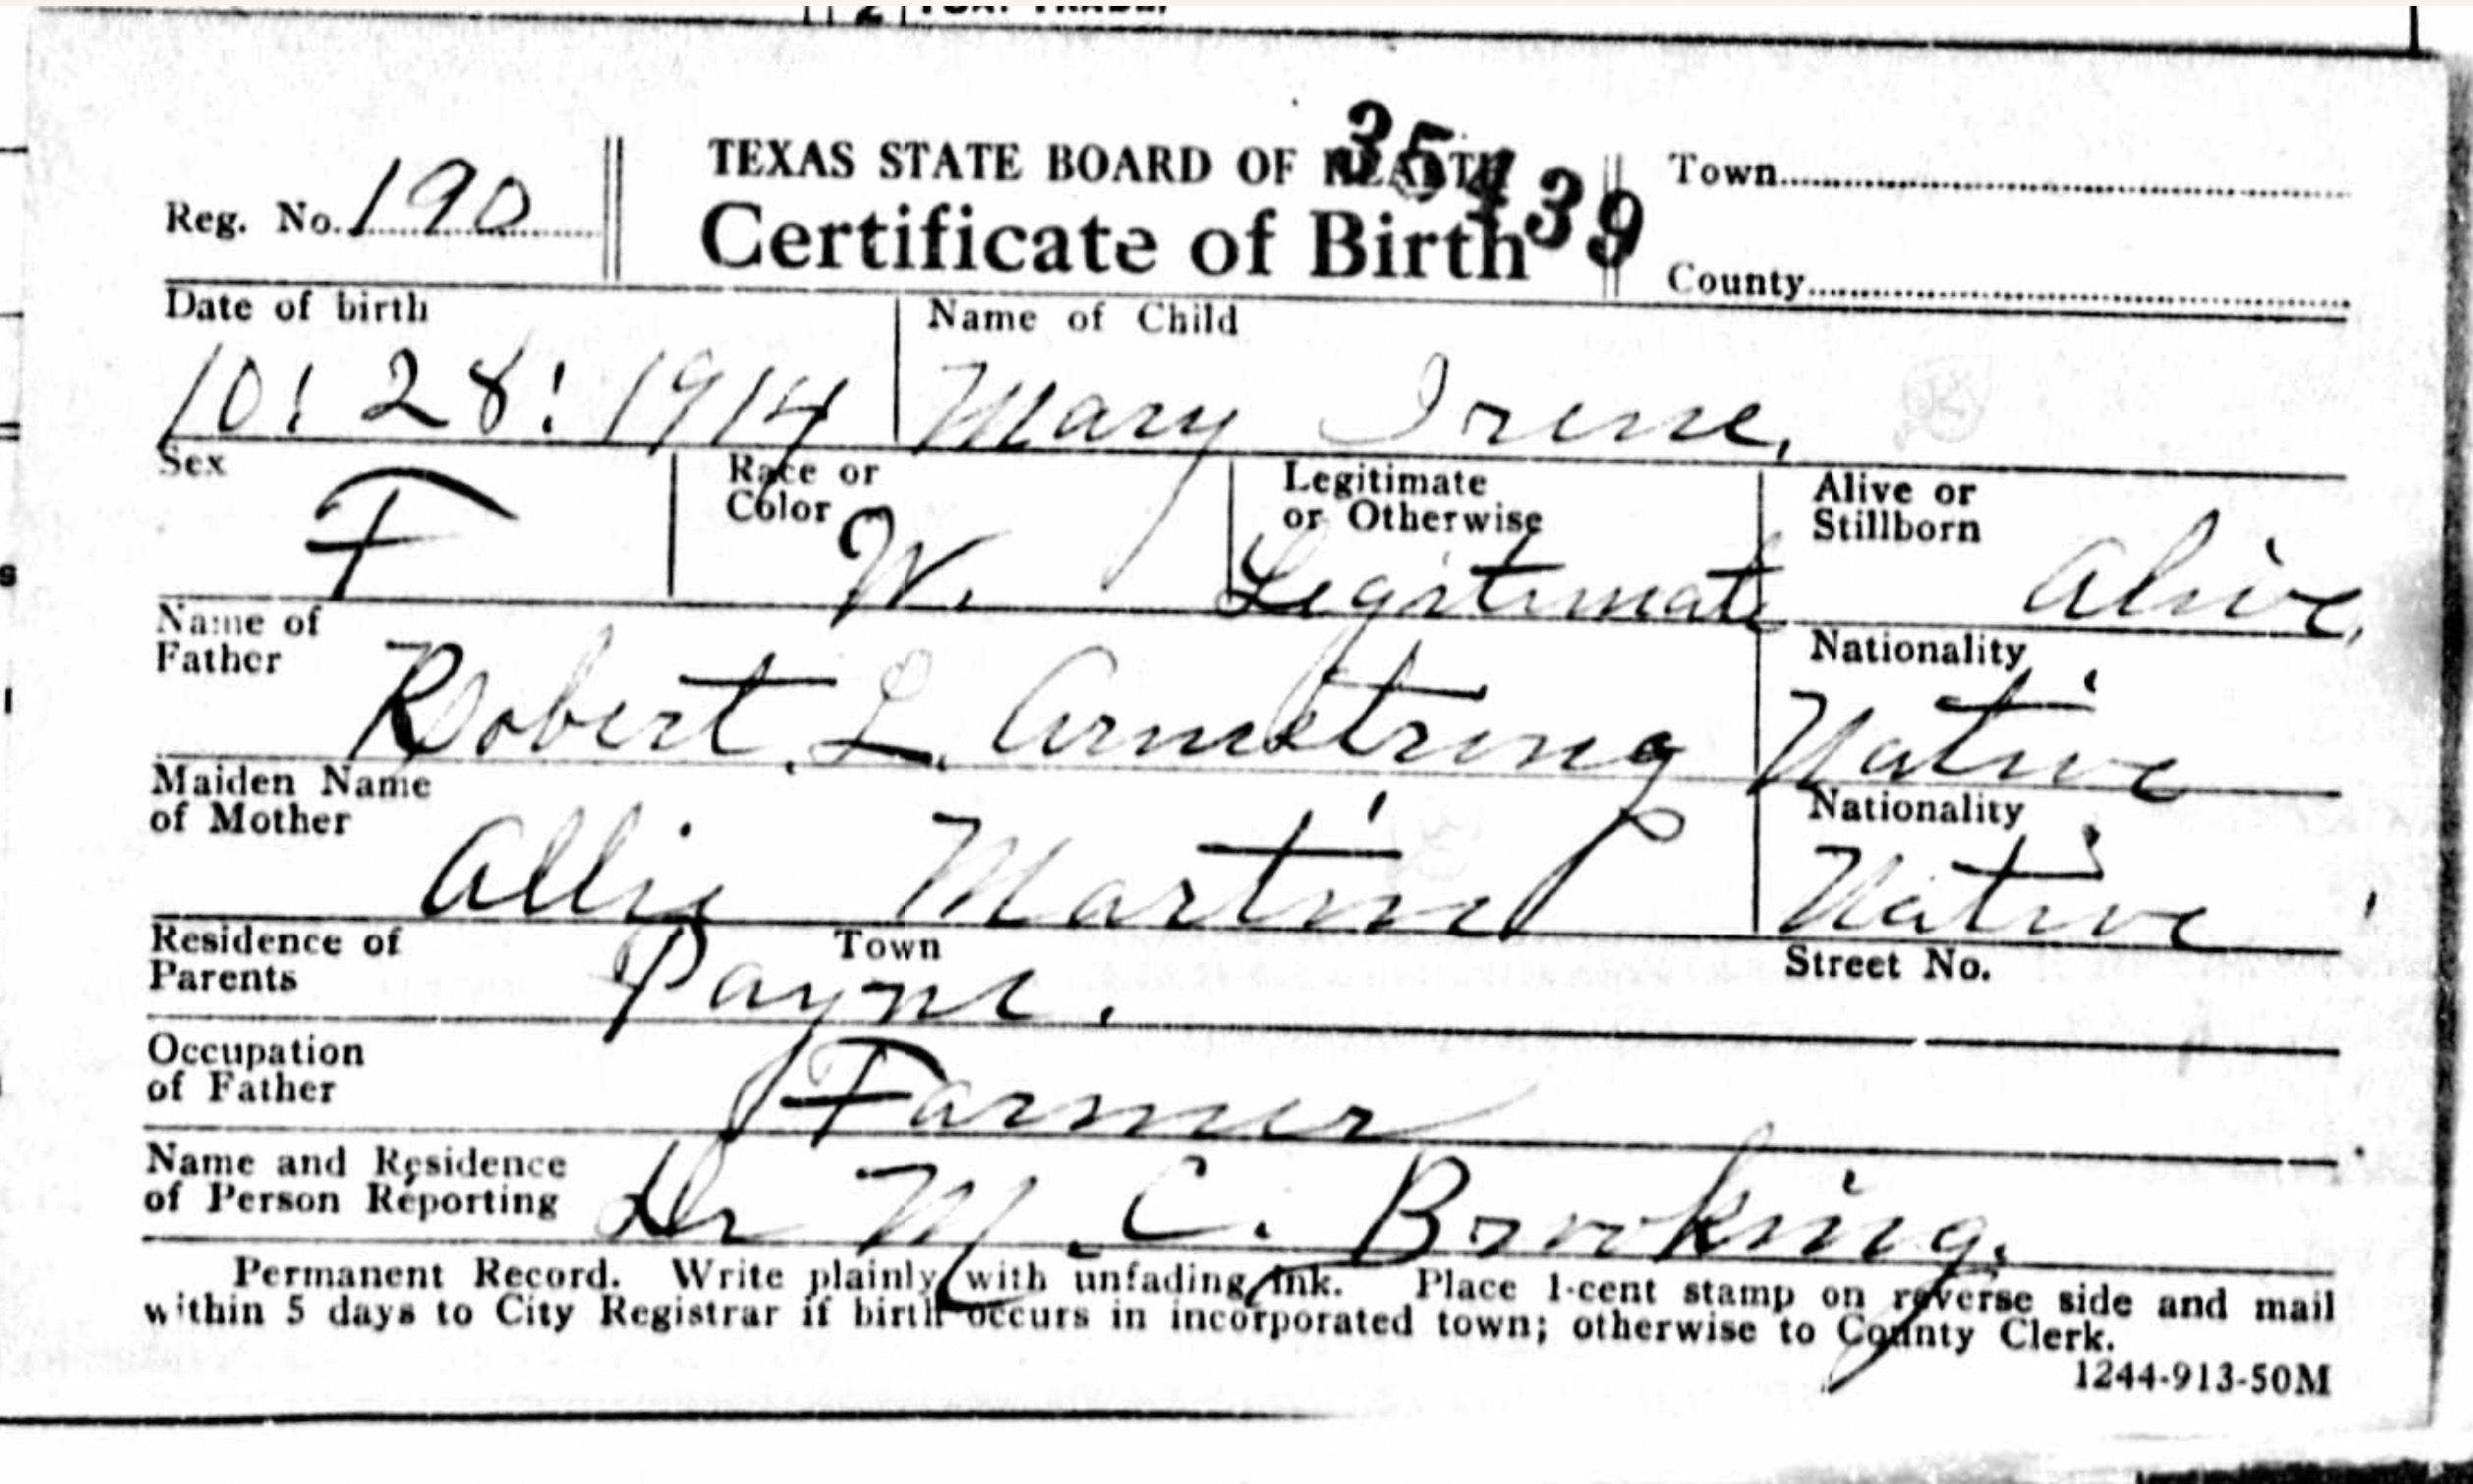 35439
TEXAS STATE BOARD OF HEALTH
Reg. No. 190
Certificate of Birth
Town
County
Date of birth
10: 28: 1914
Name of Child
Mary Irene,
Sex
F
Race or
Color
W.
Legitimate
or Otherwise
Legitimate
Alive or
Stillborn
Alive,
Name of
Father
Robert L. Armstrong
Nationality
Native
Maiden Name
of Mother
Allie Martin
Nationality
Native
Residence of
Parents
Town
Payne.
Street No.
Occupation
of Father
Farmer
Name and Residence
of Person Reporting
Dr M. C. Brooking.
Permanent Record. Write plainly with unfading ink. Place 1-cent stamp on reverse side and mail
within 5 days to City Registrar if birth occurs in incorporated town; otherwise to County Clerk.
1244-913-50M